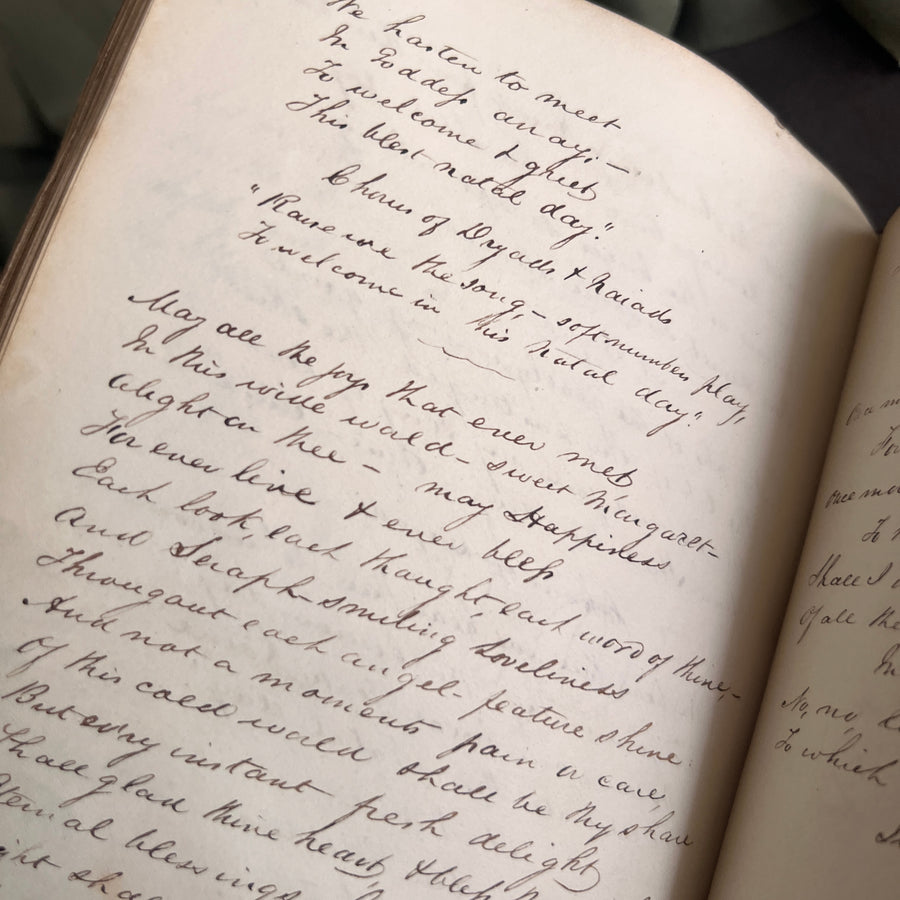 We hasten to meet
In Goddess array; —
To welcome & greet
This blest natal day."
Chorus of Dryads & Naiads
"Raise we the song, – soft numbers play,
To welcome in this natal day."
May all the joys that ever met
In this wide world – sweet Margaret –
Alight on thee – may Happiness
For ever live & ever bless
Each look, each thought, each word of thine, –
And Seraph-smiling Loveliness
Througout each angel-feature shine.
And not a moments pain or care,
Of this cold world shall be thy share
But every instant fresh delight
Shall glad thine heart, & bless
blessings
No, no,
To which
Shall I
Of all the
once more